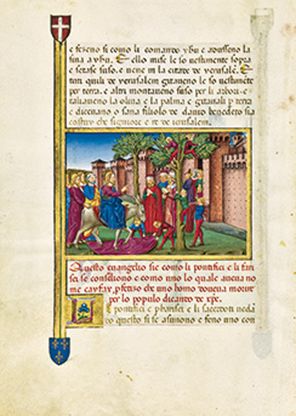 e feseno si como li comando yhu e adusseno la
sina a yhu. Et ello mise le so uestimente sopra
e setase suso. e uene in la citate de yerusalẽ.
tuti quili de yerusalem gitaueno le so uestimẽte
per terra. e altri montaueno suso per li arbori. e
taliaueno la oliua e la palma e gitauali p terra
e diceuano. o sana filiolo de dauid benedeto sia
costuy che signiore e re de ierusalem.
Questo euangelio sie como li pontifici e li fari
sei se consiliono e como uno lo quale aueua no
me cayfax, pfetizo che uno homo doueua morire
per lo populo dicanto de xpe.
I pontifici e pharisei e li sacerdoti
questo si se asunono e feno uno con